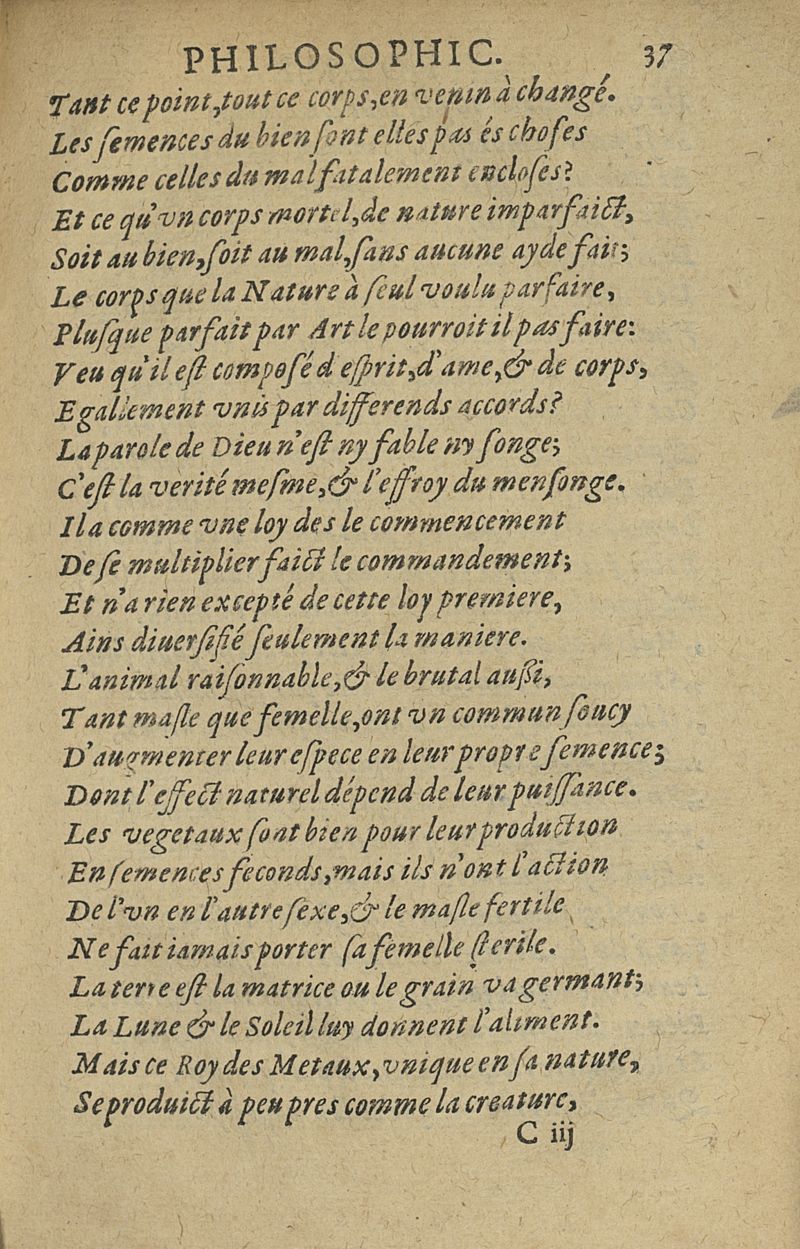 PHILOSOPHIC. 37
Tant ce point, tout ce corps, en venin à changé.
Les ſemences du bien ſont elles pas és choſes
Comme celles du mal fatalement encloſes?
Et ce qu'vn corps mortel, de nature imparfaict,
Soit au bien, ſoit au mal, ſans aucune ayde fait;
Le corps que la Nature à ſeul voulu parfaire,
Pluſque parfait par Art le pourroit il pas faire:
Veu qu'il eſt compoſé d'eſprit, d'ame, & de corps,
Egallement vnis par differends accords?
La parole de Dieu n'eſt ny fable ny ſonge;
C'eſt la verité meſme, & l'effroy du menſonge.
Il a comme vne loy des le commencement
De ſe multiplier faict le commandement;
Et n'a rien excepté de cette loy premiere,
Ains diuerſifié ſeulement la maniere.
L'animal raiſonnable, & le brutal auſſi,
Tant maſle que femelle, ont vn commun ſoucy
D'augmenter leur eſpece en leur propre ſemence;
Dont l'effect naturel dépend de leur puiſſance.
Les vegetaux ſont bien pour leur production
En ſemences feconds, mais ils n'ont l'action
De l'vn en l'autre ſexe, & le maſle fertile
Ne fait iamais porter ſa femelle ſterile.
La terre eſt la matrice ou le grain va germant;
La Lune & le Soleil luy donnent l'aliment.
Mais ce Roy des Metaux, vnique en ſa nature,
Se produict à peu pres comme la creature,
C iij